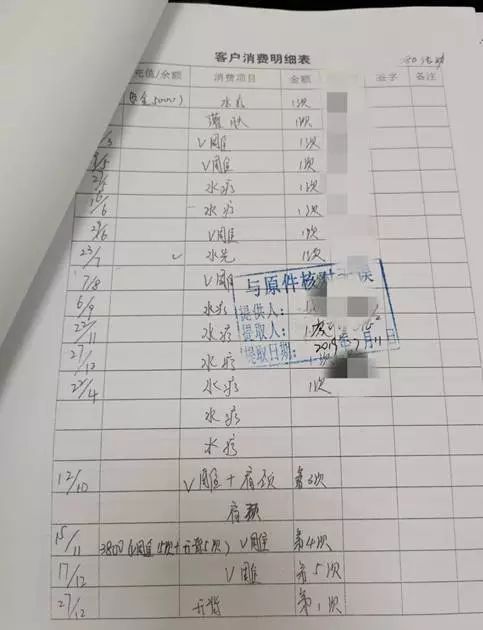 客户消费明细表
充值/余额 消费项目 金额 签字 备注
5000) 水疗 1次
1次
V雕 1次
V雕 1次
水疗 1次
/6 水疗 1次
/6 V雕 1次
23/7 水光 1次
7/8 V雕
与原件核对无误
6/9 水疗 提供人:
22/11 水疗 提取人:
提取日期: 2019年7月11日
27/12 水疗 1次
22/4 水疗 1次
水疗
水疗
12/10 V雕+肩颈 第3次
肩颈
15/11 3800(V雕5次+开背5次) V雕 第4次
17/12 V雕 第5次
27/12 开背 第1次